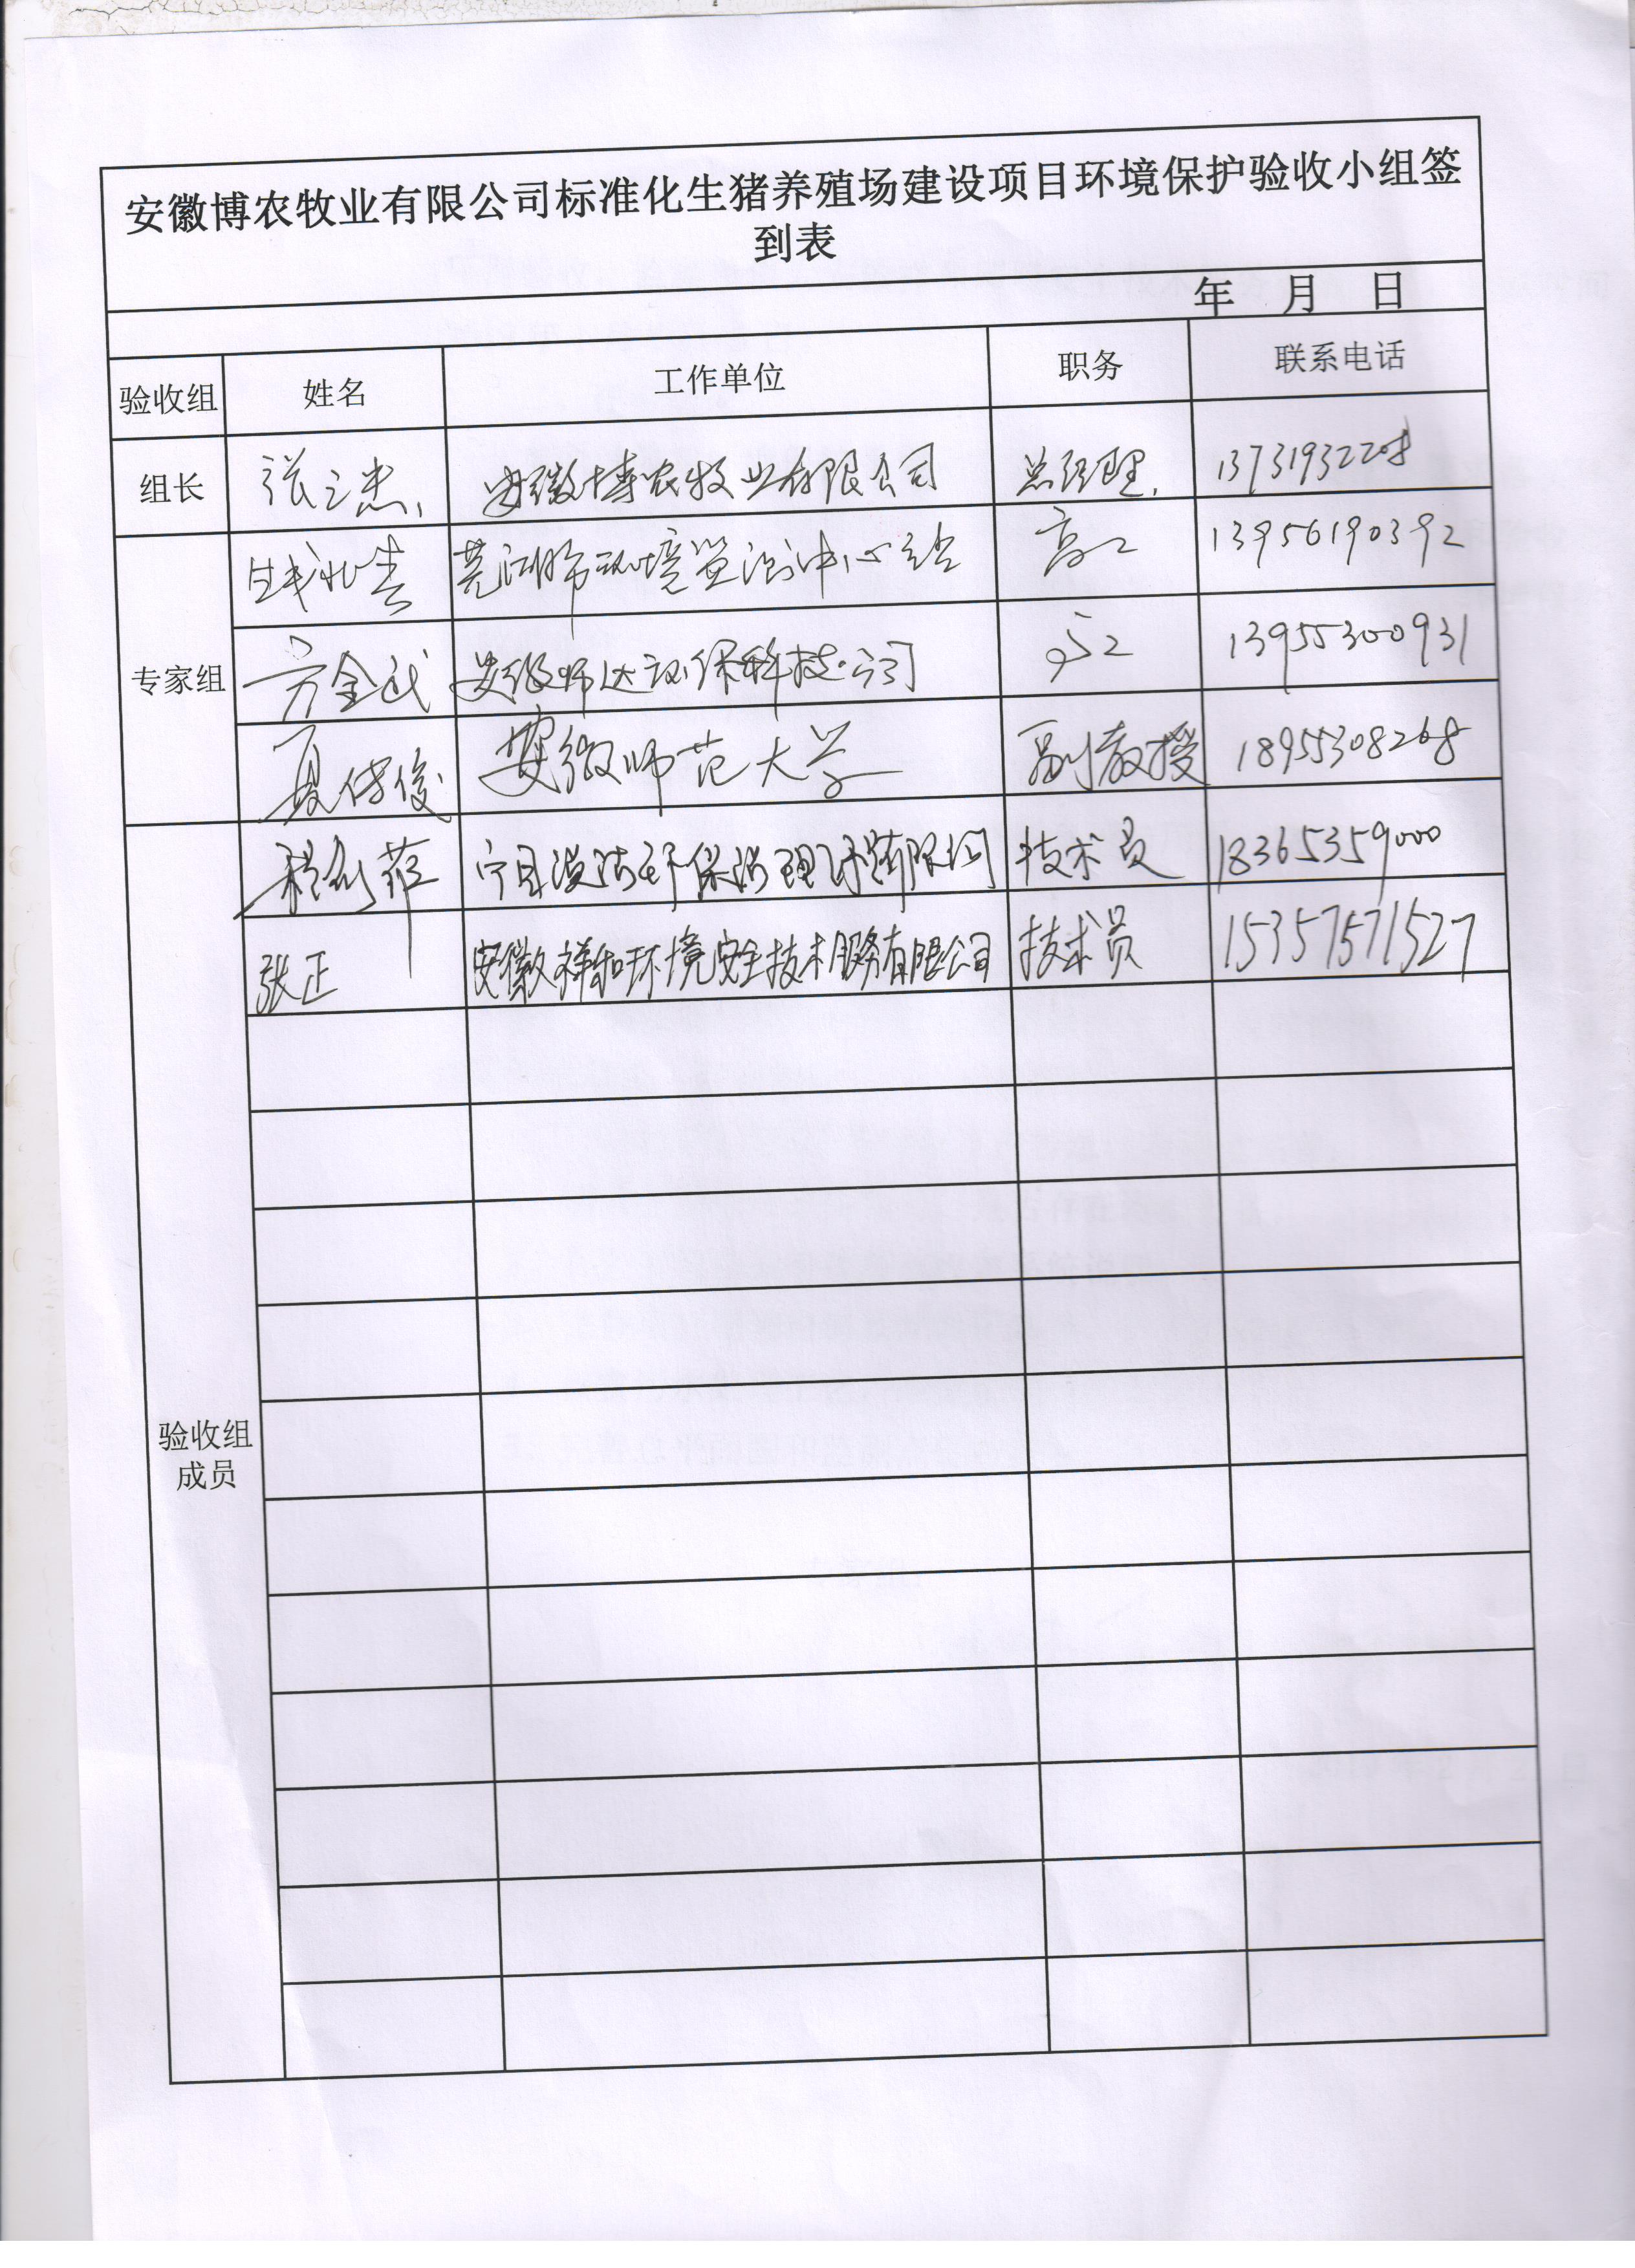 安徽博农牧业有限公司标准化生猪养殖场建设项目环境保护验收小组签
到表
年 月 日
验收组 姓名 工作单位 职务 联系电话
组长 张之忠 安徽博农牧业有限公司 总经理
专家组
芜湖市环境监测中心站 高工 13956190392
方金武 环保科技公司 高工 13955300931
夏传俊 安徽师范大学 副教授 18955308268
验收组
成员
技术员 18365359000
张正 安徽祥和环境安全技术服务有限公司 技术员 15357571527